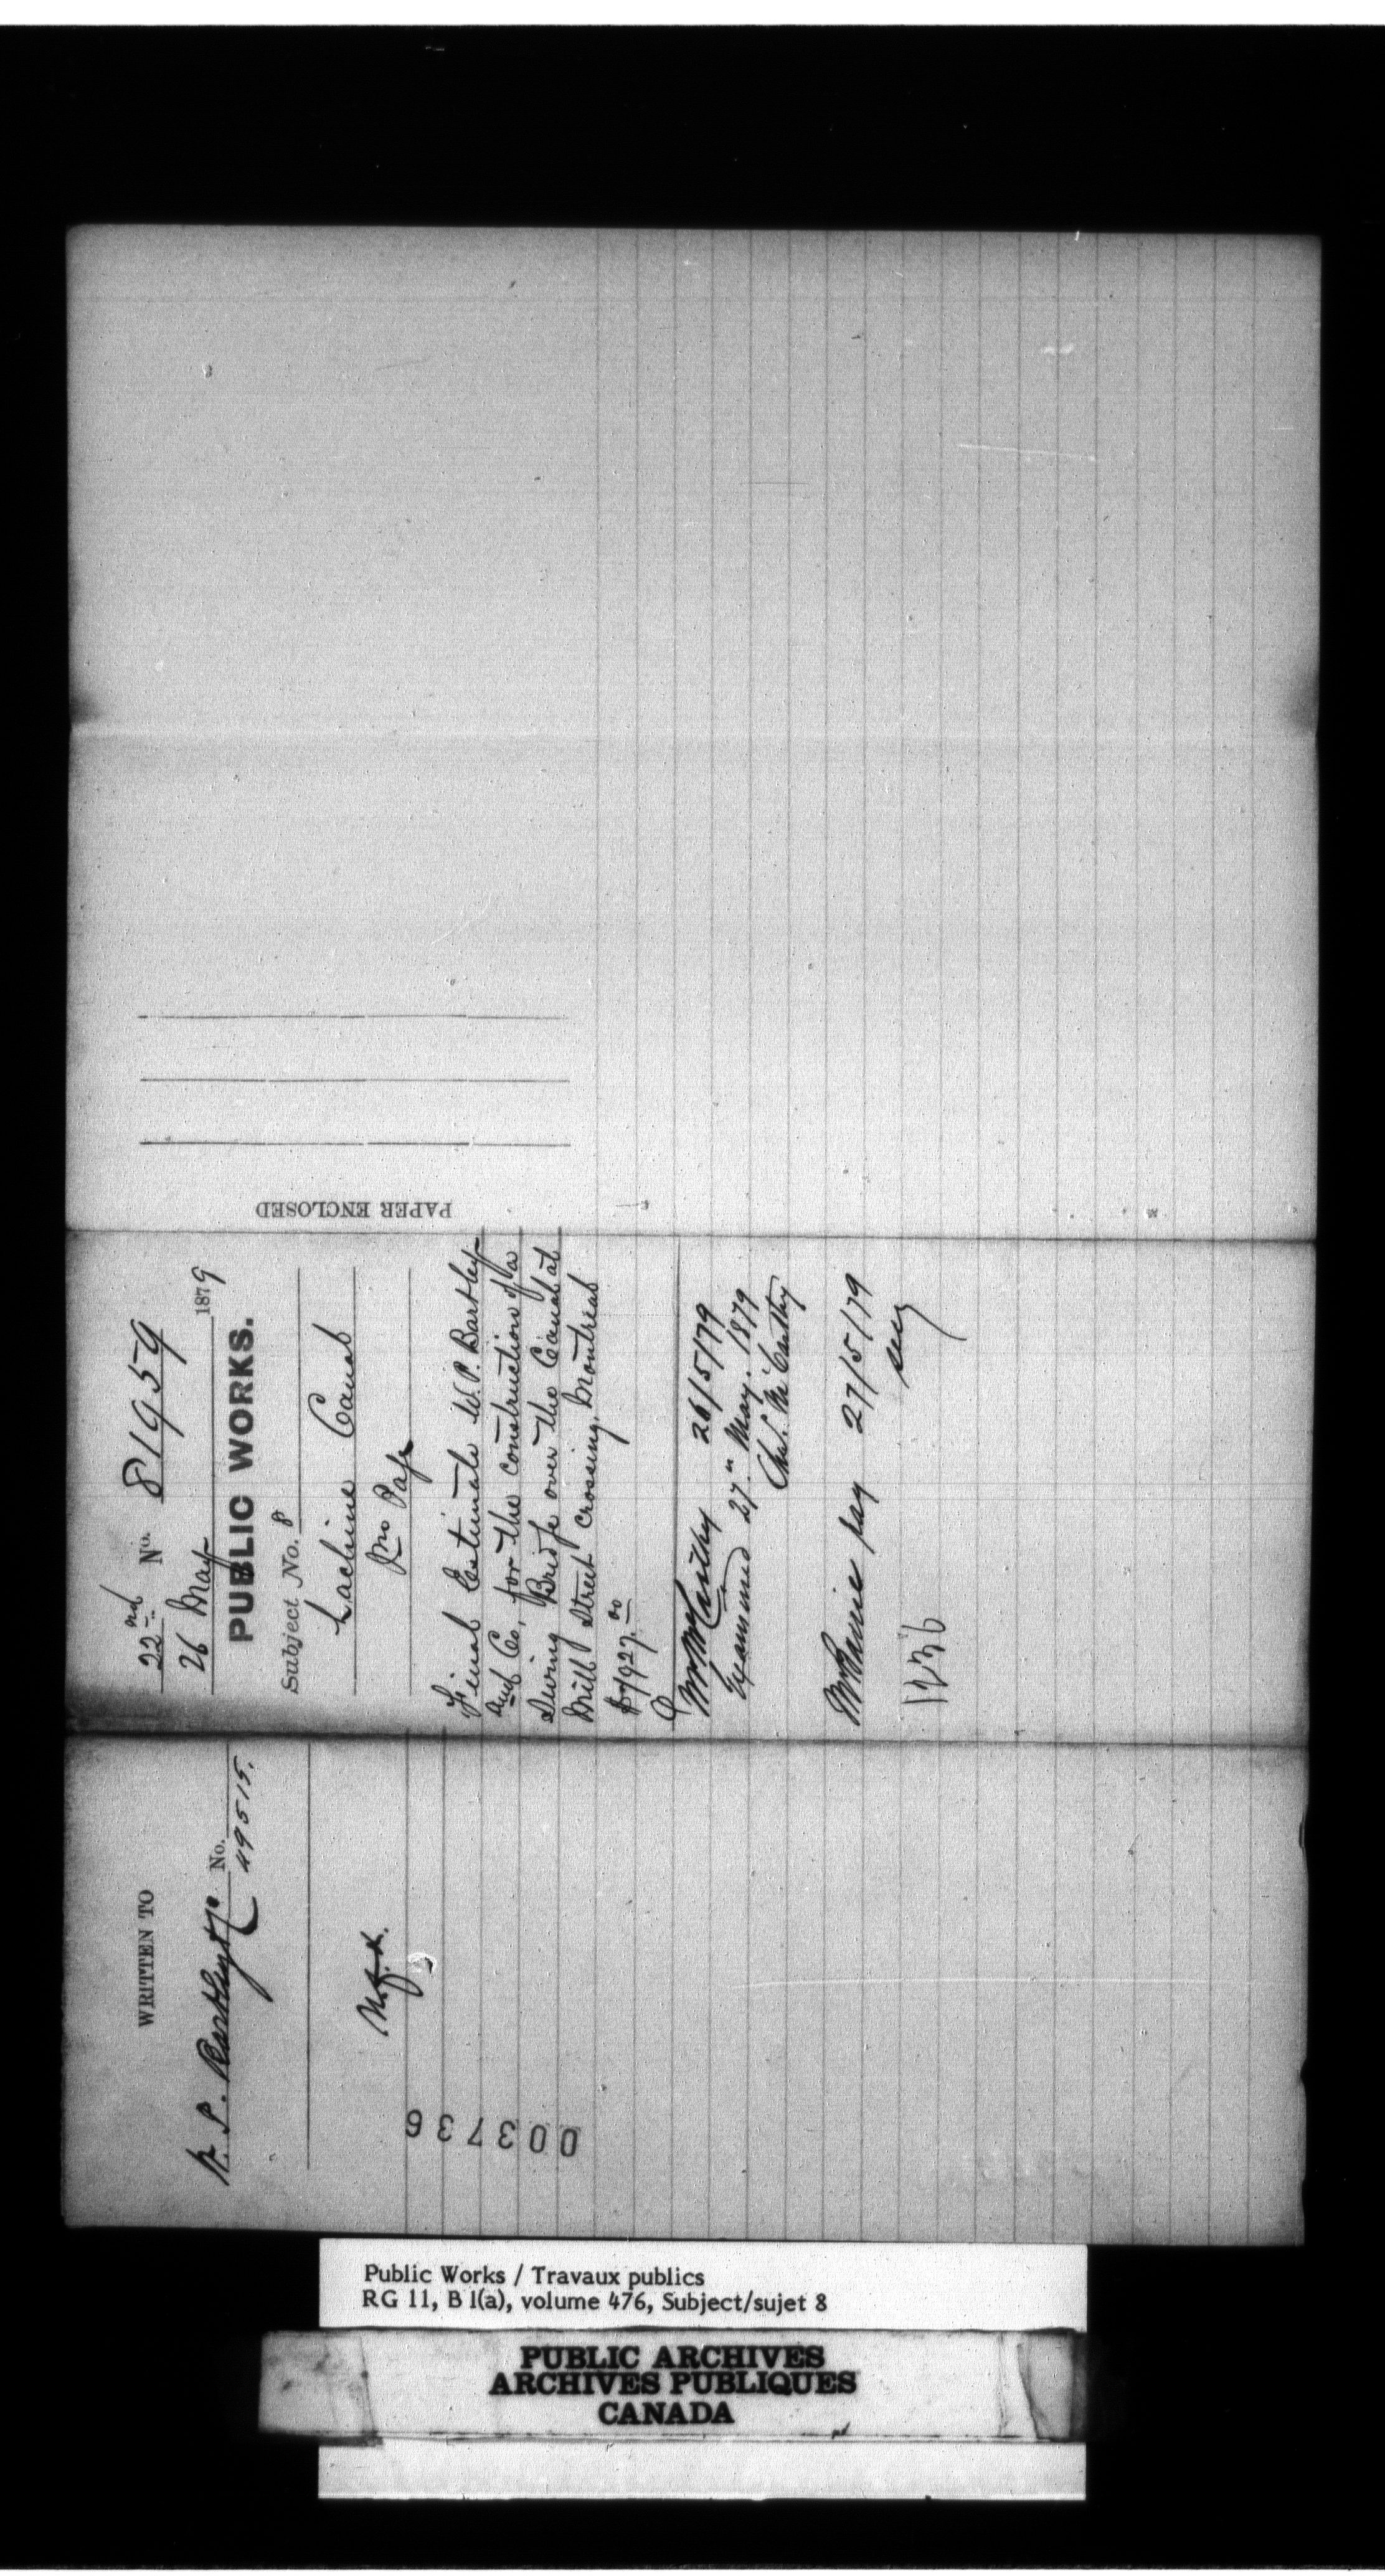 22nd No. 81959
26 May 1879
PUBLIC WORKS.
Subject No. 8
Lachine Canal
Jno Page
Final Estimate W. P. Bartley
and Co, for the construction of a
Swing Bridge over the Canal at
Mill Street crossing, Montreal
$7927.00
Mr McCarthy 26/5/79
Examined 27th May. 1879
Chs. McCarthy
pay 27/5/79
1236
PAPER ENCLOSED
WRITTEN TO
W. P. Bartley & Co No. 49515.
003736
Public Works / Travaux publics
RG 11, B 1(a), volume 476, Subject/sujet 8
PUBLIC ARCHIVES
ARCHIVES PUBLIQUES
CANADA